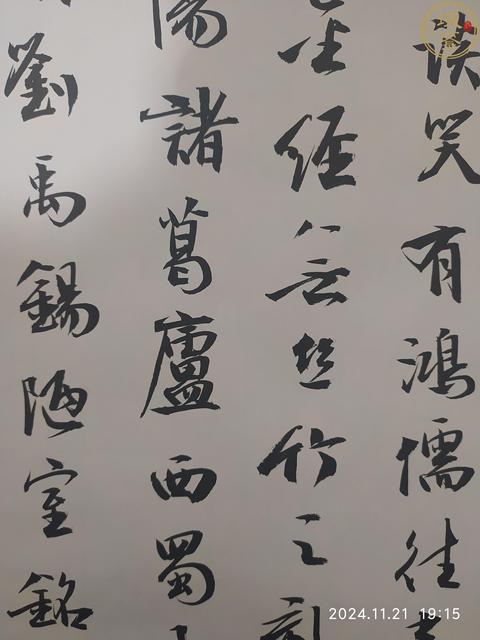 談笑有鴻儒往
金經無絲竹之亂
陽諸葛廬西蜀
劉禹錫陋室銘
2024.11.21 19:15